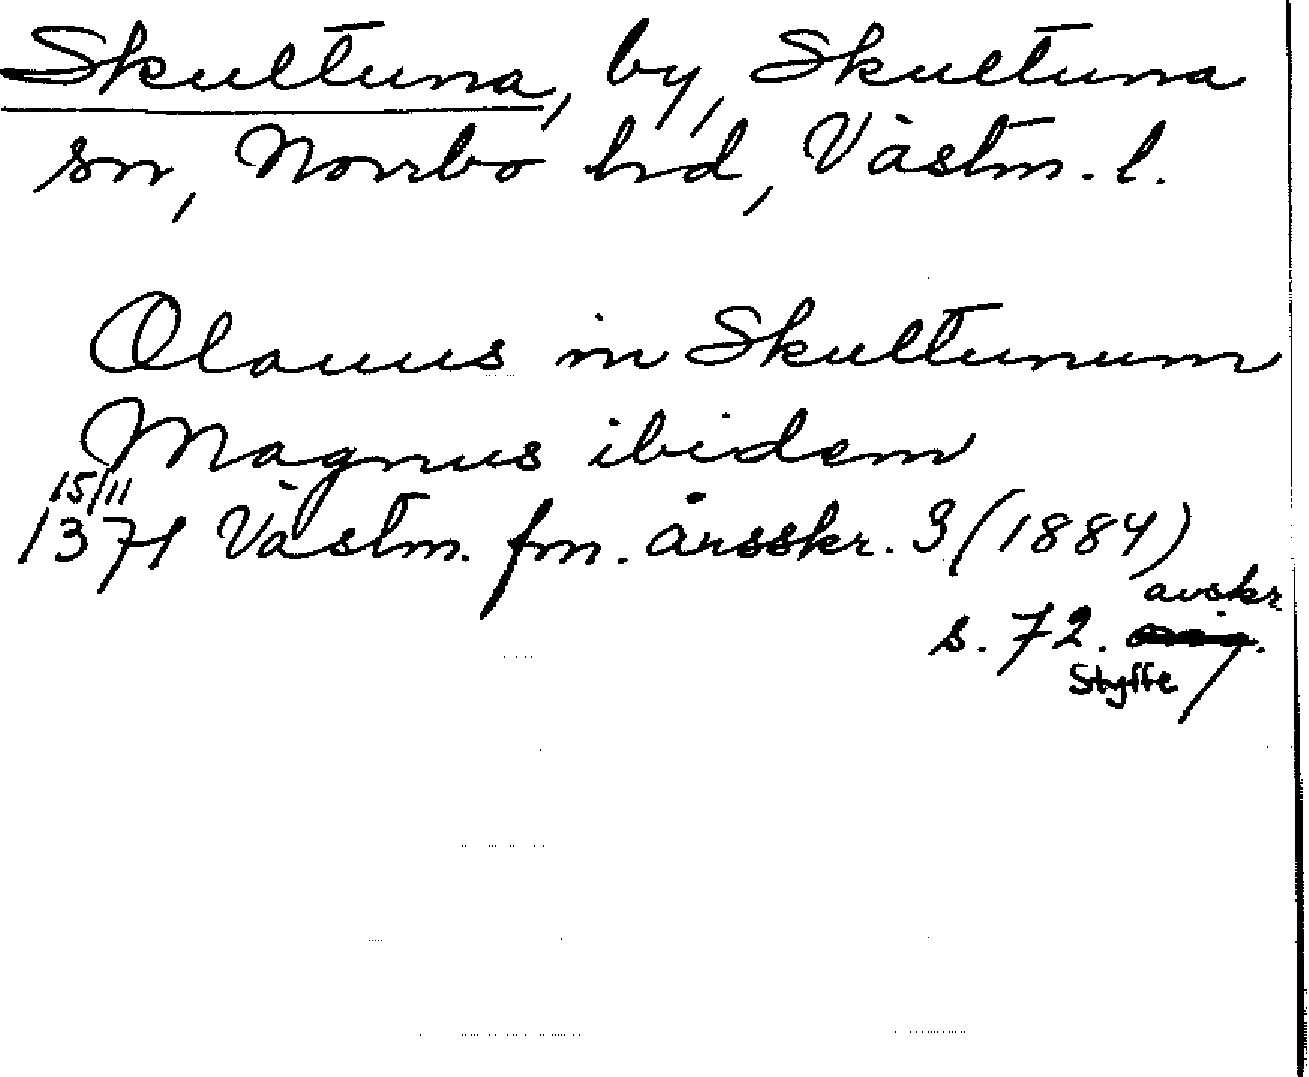 Skultuna, by, Skultuna
sn, Norrbo hd, Västm. l.
Olauus in Skultunum
Magnus ibidem
15/11
1371 Västm. fm. årsskr. 3 (1884)
avskr.
s. 72.
Styffe